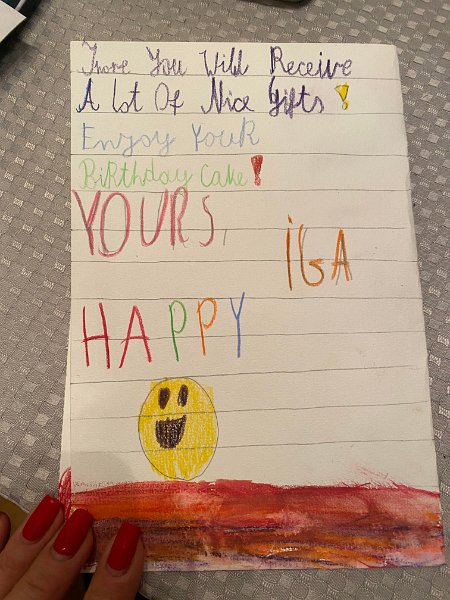 I hope You Will Receive
A Lot Of Nice Gifts!
Enjoy Your
Birthday Cake!
YOURS,
iGA
HAPPY